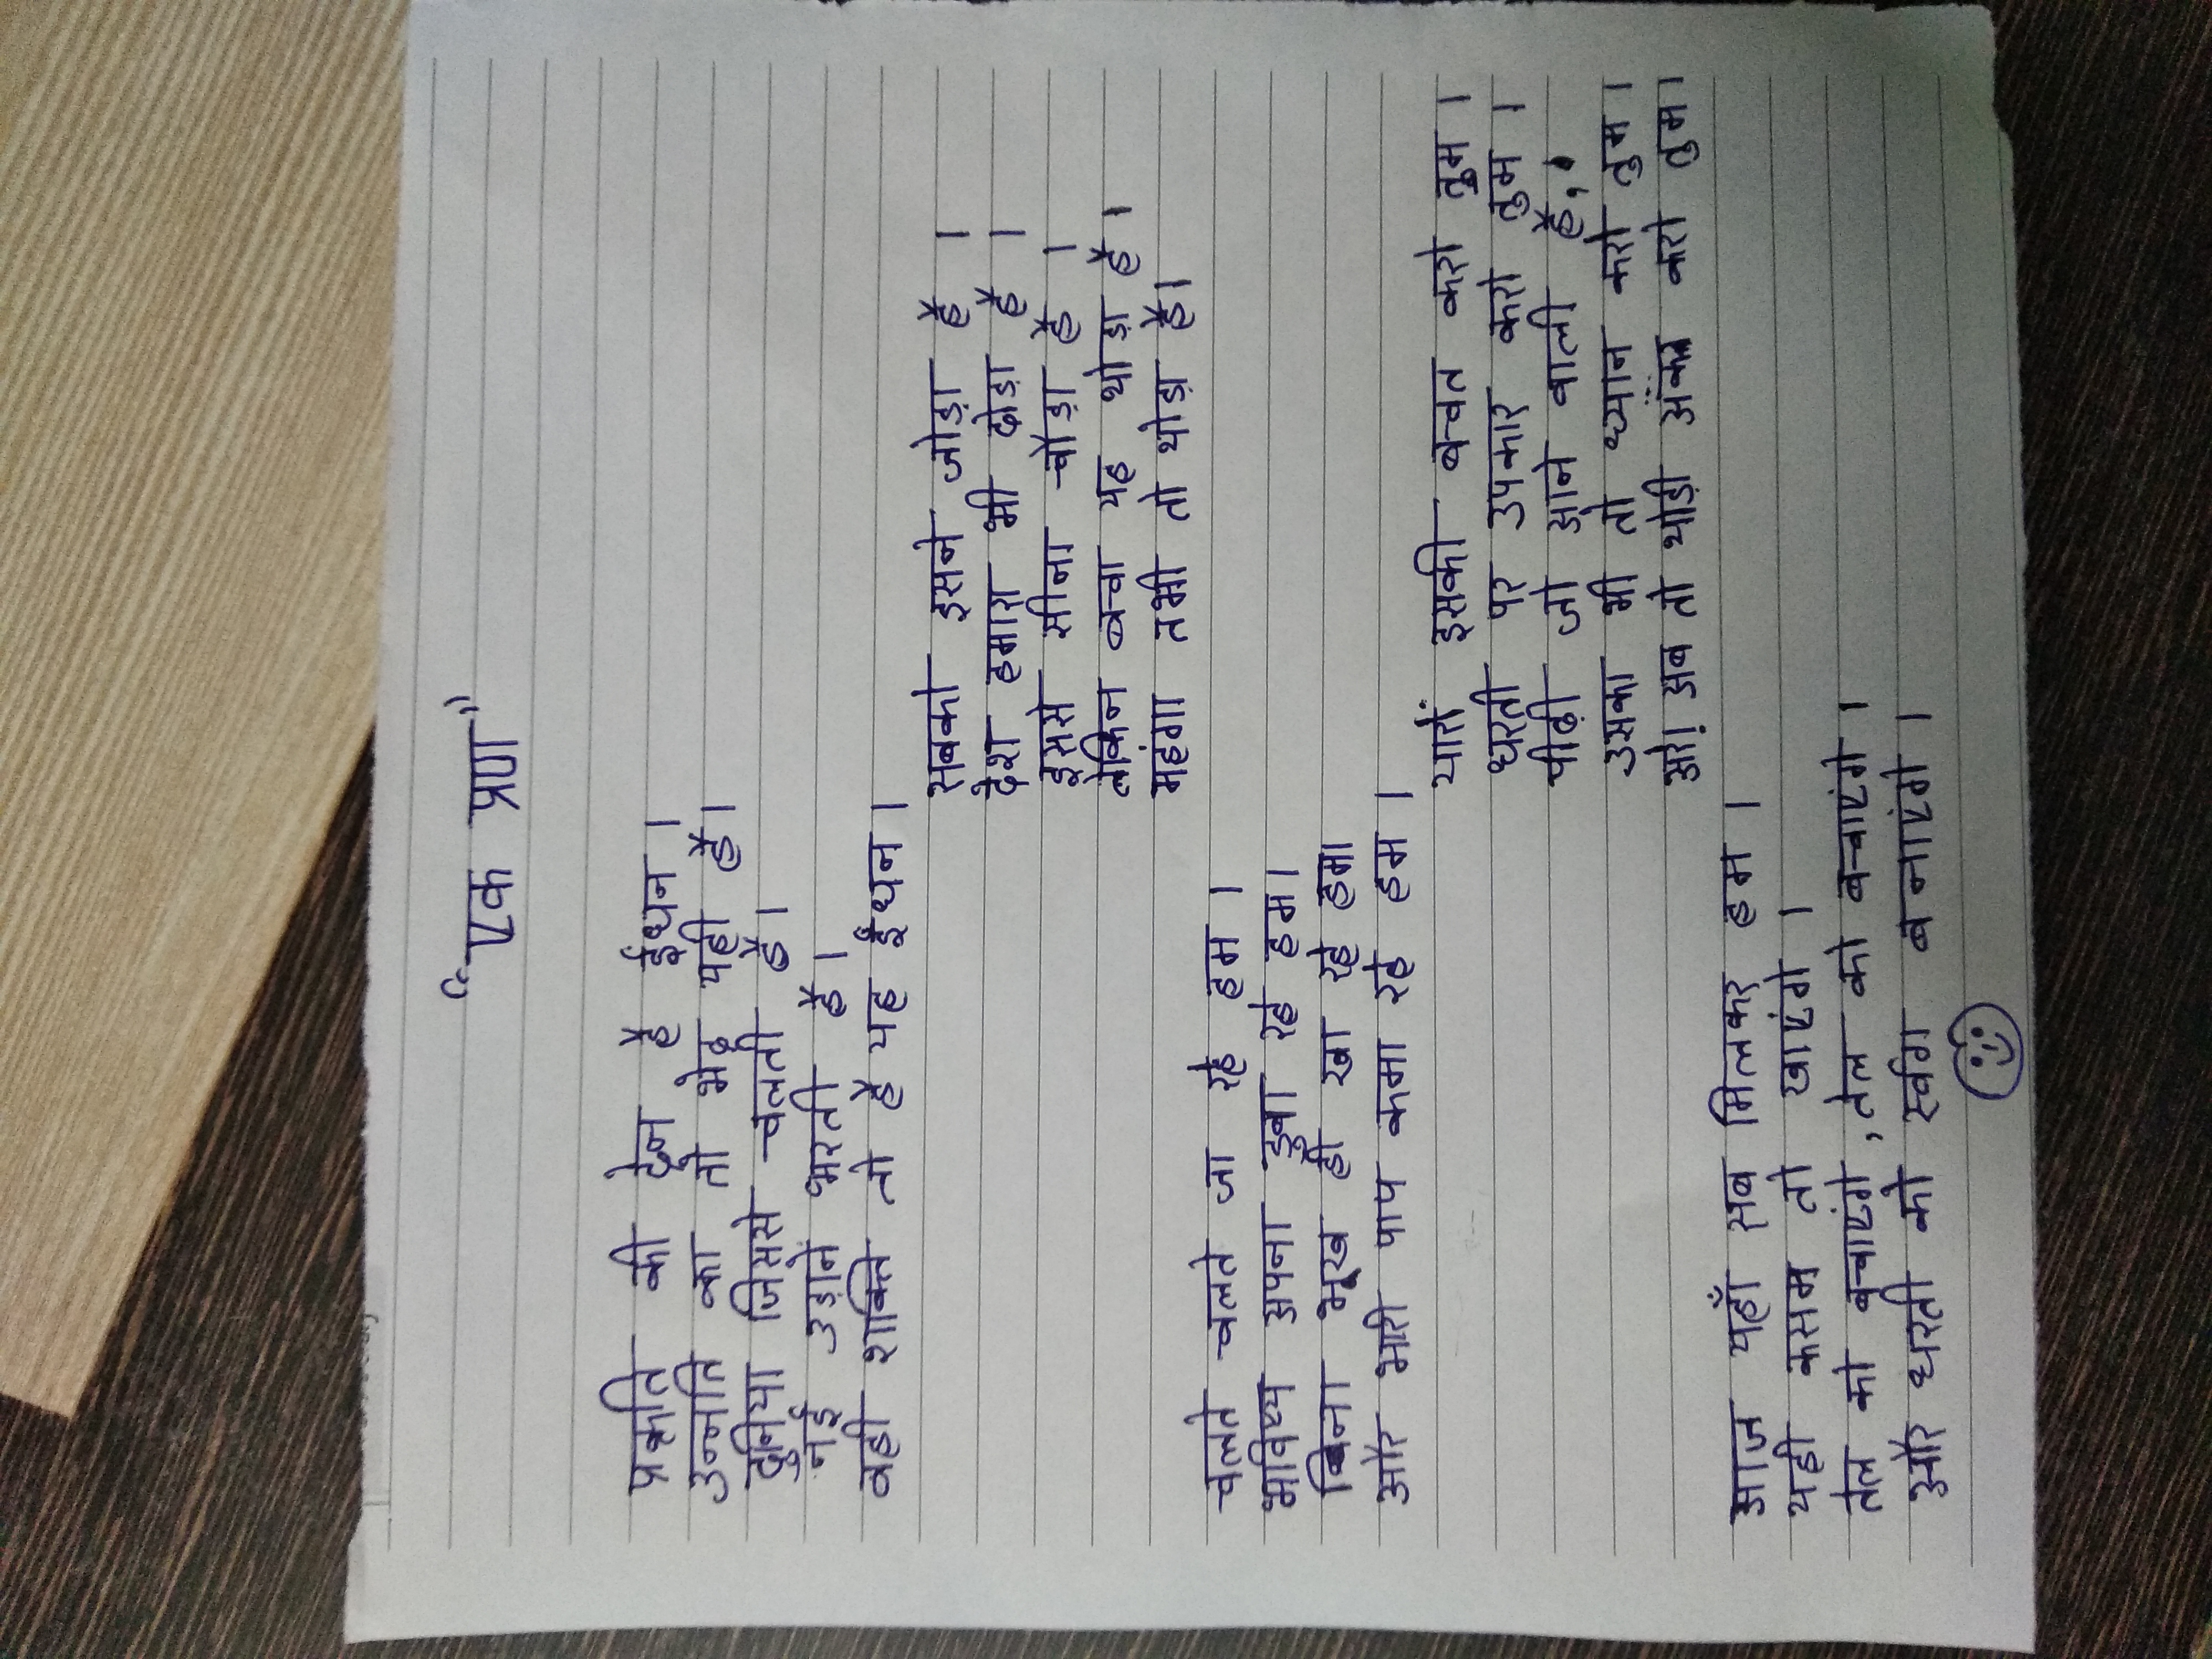 "एक प्रण"
प्रकृति की देन है ईंधन।
उन्नति का तो भेद यही है।
दुनिया जिससे चलती है।
नई उड़ाने भरती है।
वही शक्ति तो है यह ईंधन।
सबको इसने जोड़ा है।
देश हमारा भी दौड़ा है।
इससे सीना चौड़ा है।
लेकिन बचा यह थोड़ा है।
महंगा तभी तो थोड़ा है।
चलते चलते जा रहे हम।
भविष्य अपना डुबा रहे हम।
बिना भूख ही खा रहे हम।
और भारी पाप कमा रहे हम।
यारों इसकी बचत करो तुम।
धरती पर उपकार करो तुम।
पीढ़ी जो आने वाली है,
उसका भी तो ध्यान करो तुम।
अरे! अब तो थोड़ी करो तुम।
आज यहाँ सब मिलकर हम।
यही कसम तो खाएंगे।
तेल को बचाएंगे, तेल को बचाएंगे।
और धरती को स्वर्ग बनाएंगे।